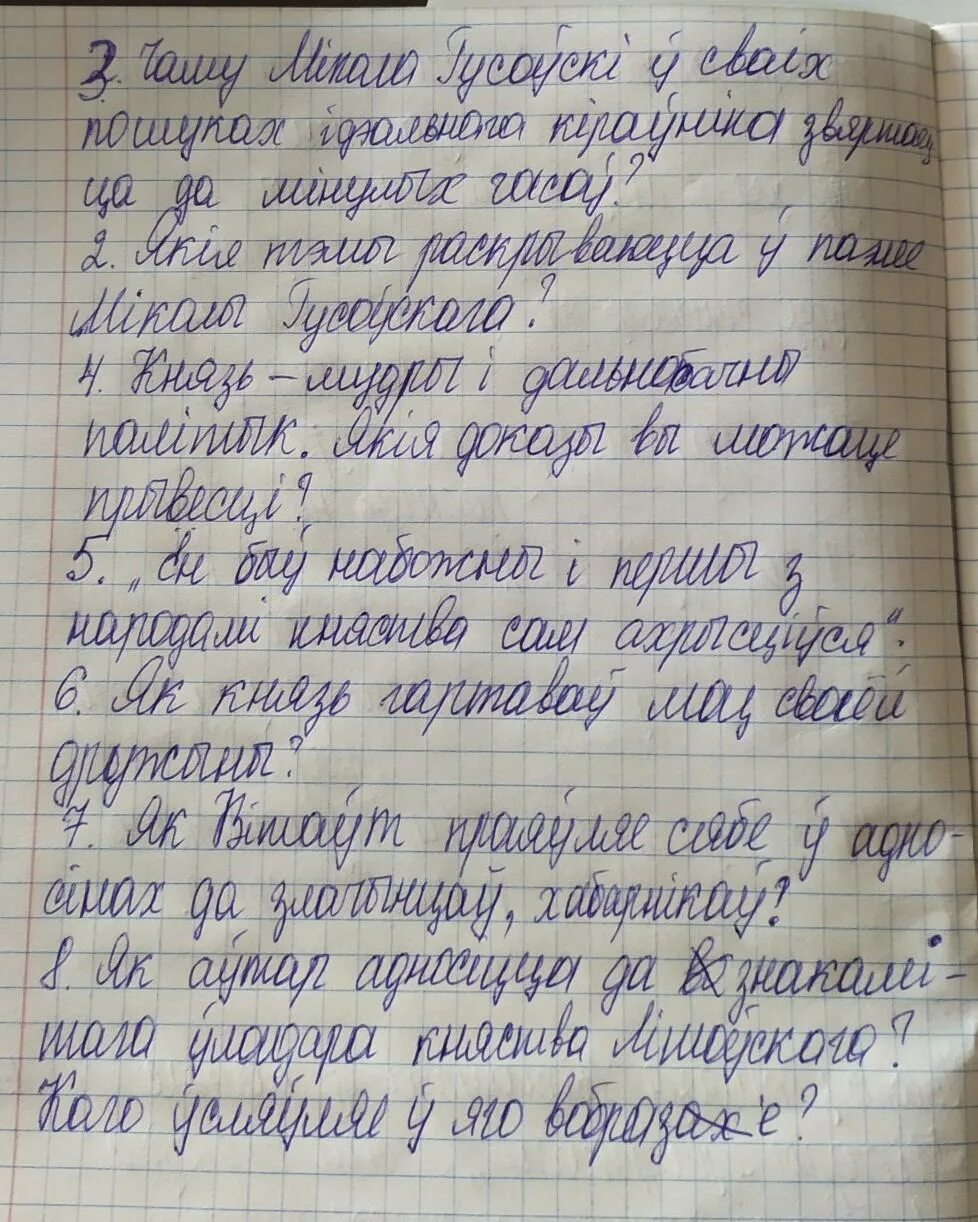 3. Чаму Мікола Гусоўскі ў сваіх
пошуках ідэальнага кіраўніка звяртаец
ца да мінулых часаў?
2. Якія тэмы раскрываюцца ў паэме
Міколы Гусоўскага?
4. Князь – мудры і дальнабачны
палітык. Якія доказы вы можаце
прывесці?
5. „Ён быў набожны і першы з
народамі княства сам ахрысціўся“.
6. Як князь гартаваў моц сваёй
дружыны?
7. Як Вітаўт праяўляе сябе ў адно-
сінах да злачынцаў, хабарнікаў?
8. Як аўтар адносіцца да знакамі-
тага ўладара княства Літоўскага?
Каго ўслаўляе ў яго вобразе?